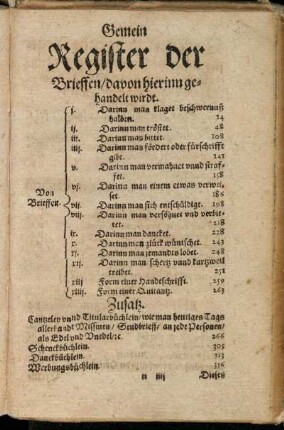 Gemein
Register der
Brieffen/davon hierinn ge-
handelt wirdt.
Von
Brieffen
j. Darinn man klaget beschwernuß
halben. 24
ij. Darinn man tröstet. 48
iij. Darinn man bittet. 108
iiij. Darinn man fördert oder fürschrifft
gibt. 141
v. Darinn man vermahnet vnnd straf-
fet. 158
vj. Darinn man einem etwas verwei-
set 186
vij. Darinn man sich entschüldigt. 198
viij. Darinn man versöhnet vnd verbit-
tet. 218
ix. Darinn man dancket. 228
x. Darinn man glück wünschet. 243
xj. Darinn man jemandts lobet. 248
xij. Darinn man schertz vnnd kurtzweil
treibet. 251
xiij. Form einer Handeschrifft. 259
xiiij. Form einer Quitantz. 263
Zusatz.
Cantzeley vnd Titularbüchlein/wie man heutiges Tags
allerhandt Missiuen/Sendbrieff/an jede Personen/
als Edel vnd Vnedel/rc. 266
Schenckbüchlein. 305
Danckbüchlein. 313
Werbungsbüchlein. 336
Dieses